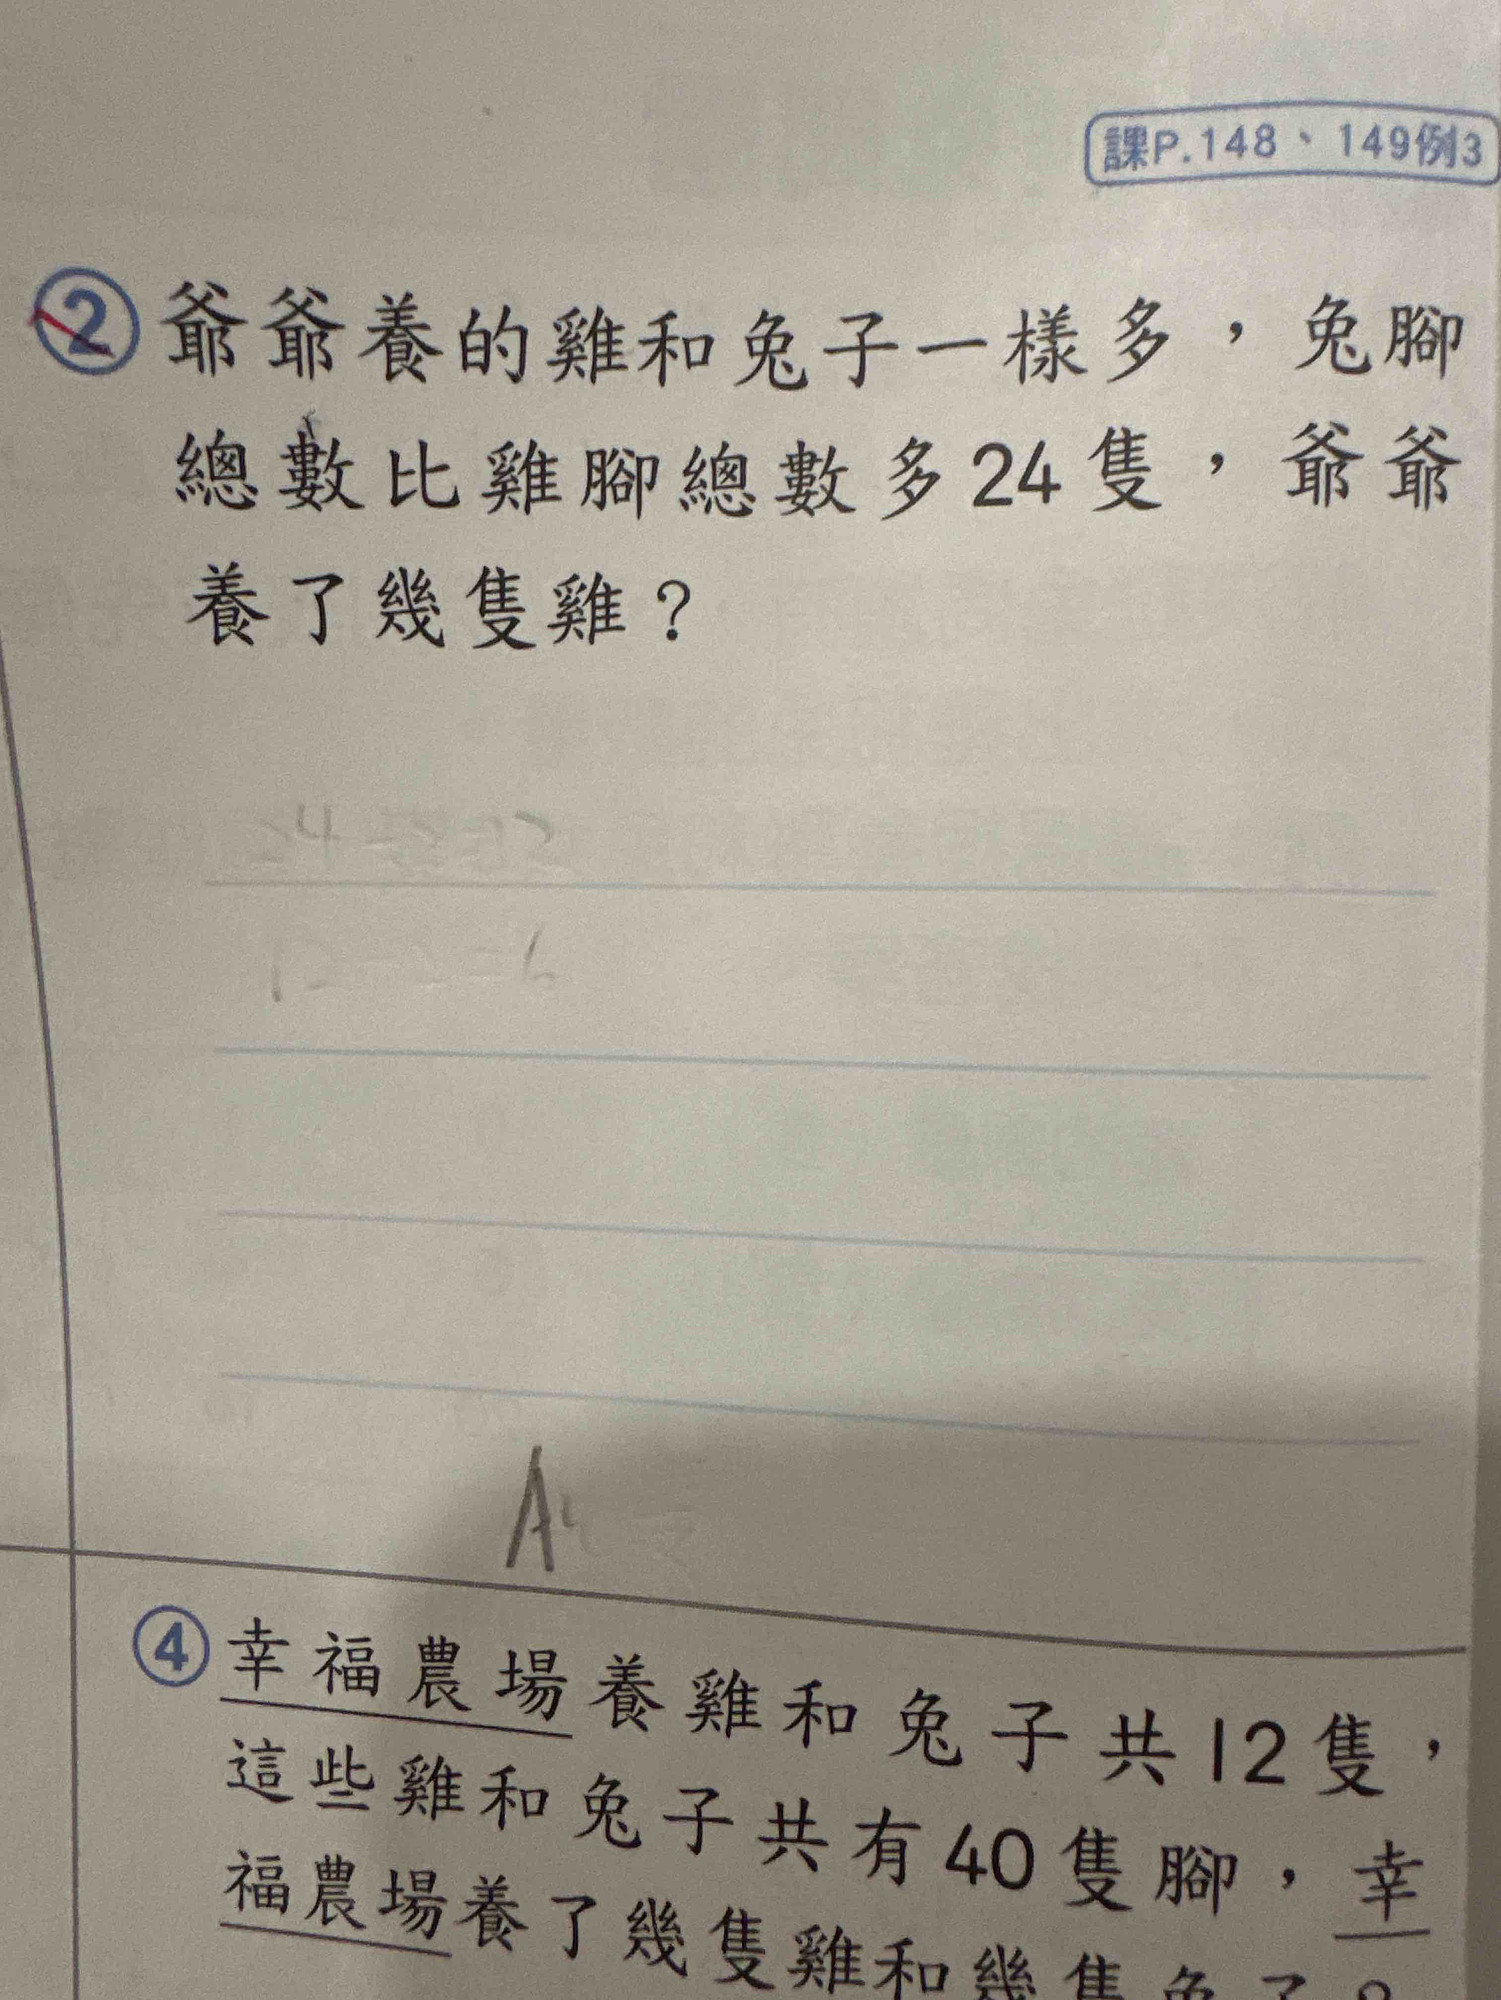 課P.148、149例3
②爺爺養的雞和兔子一樣多，兔腳
總數比雞腳總數多24隻，爺爺
養了幾隻雞？
A
④幸福農場養雞和兔子共12隻，
這些雞和兔子共有40隻腳，幸
福農場養了幾隻雞和幾隻兔子？